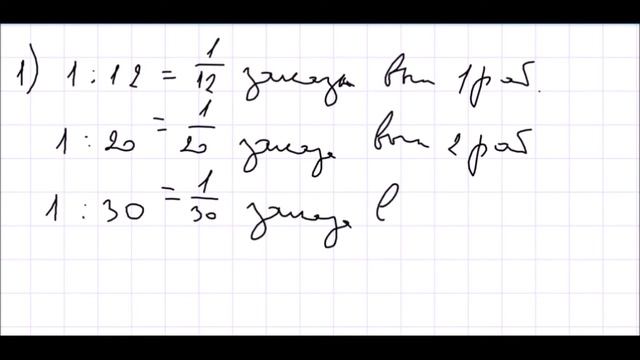 1) 1 : 12 = 1/12 заказа вып 1 раб.
1 : 20 = 1/20 заказа вып 2 раб
1 : 30 = 1/30 заказа в